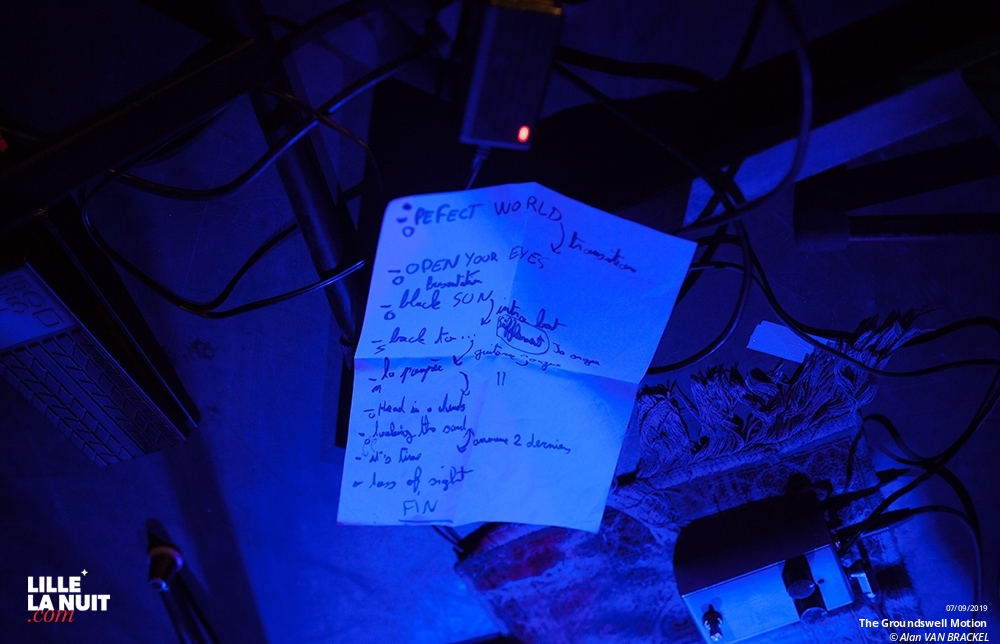 - PEFECT WORLD
transition
- OPEN YOUR EYES
- black SUN
intro
- back to...
guitare
- la poupée
- Head in a clouds
- looking the
annonce 2 dernies
- it's time
- loss of sight
FIN
LILLE
LA NUIT
.com
07/09/2019
The Groundswell Motion
© Alan VAN BRACKEL